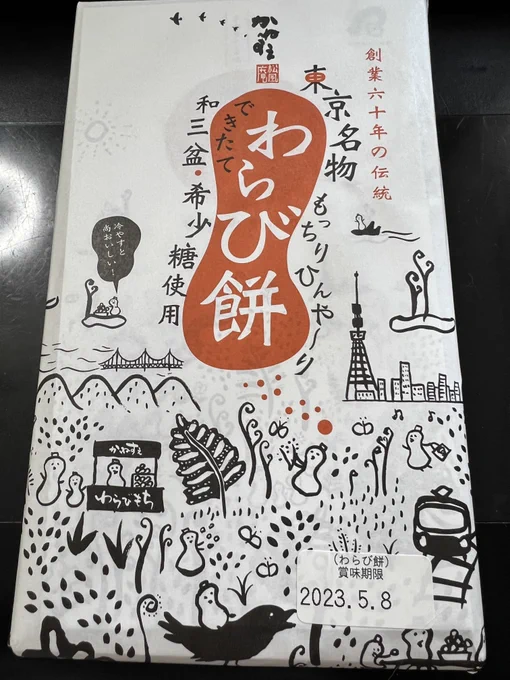 創業六十年の伝統
かねすえ
東京名物
もっちりひんや〜り
わらび餅
できたて
和三盆・希少糖使用
冷やすと
尚おいしい!
かねすえ
わらびもち
(わらび餅)
賞味期限
2023.5.8